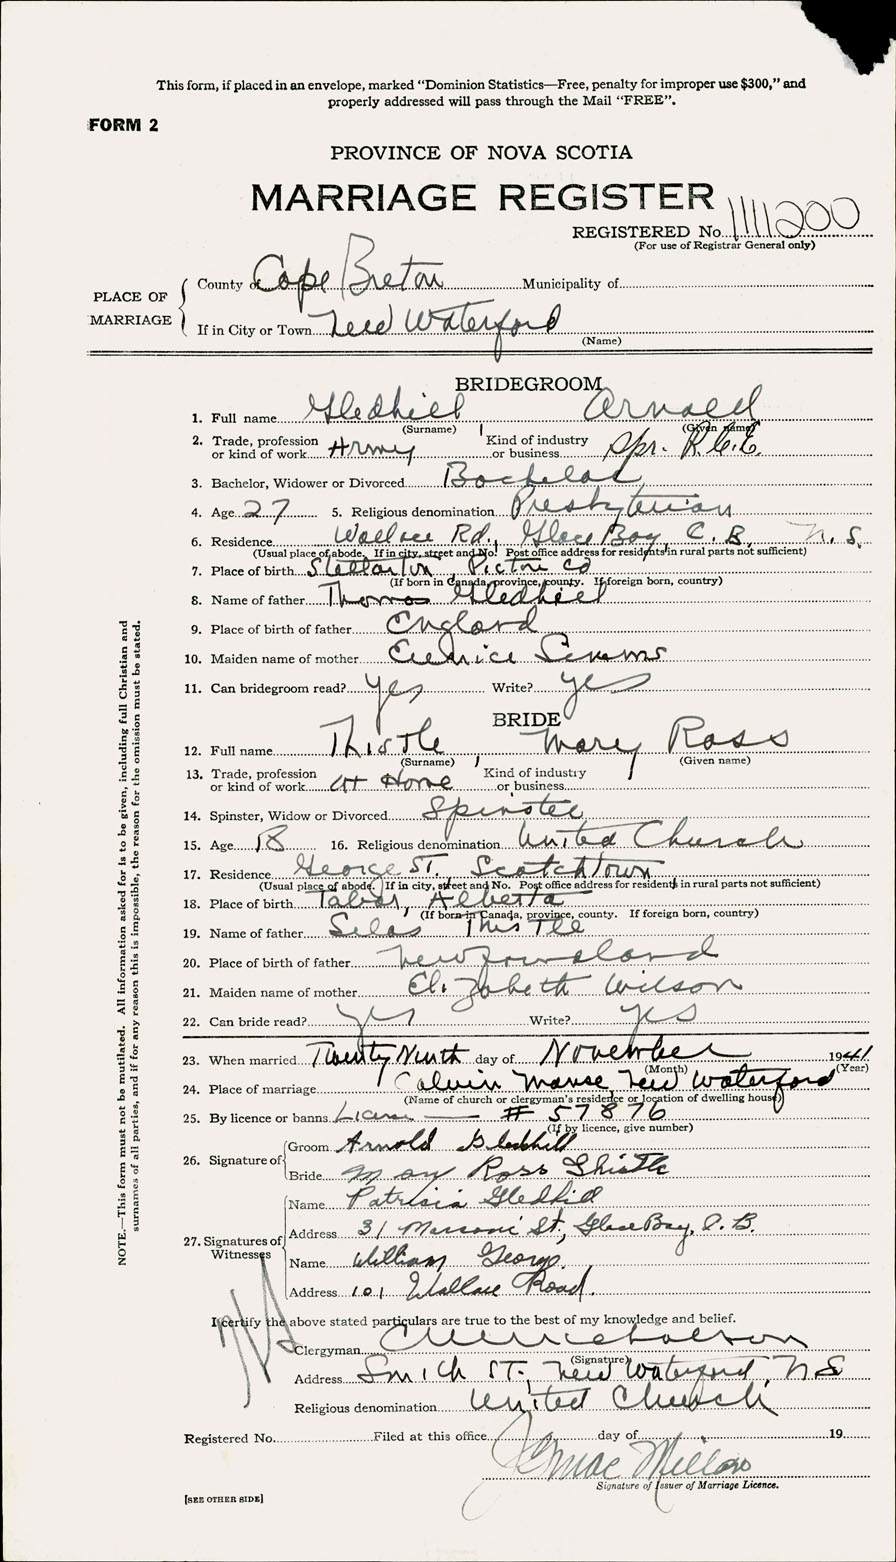 This form, if placed in an envelope, marked “Dominion Statistics—Free, penalty for improper use $300,” and
properly addressed will pass through the Mail “FREE”.
FORM 2
PROVINCE OF NOVA SCOTIA
MARRIAGE REGISTER
REGISTERED No. 111200
(For use of Registrar General only)
PLACE OF MARRIAGE
County of Cape Breton Municipality of
If in City or Town New Waterford
(Name)
BRIDEGROOM
1. Full name Gledhill Arnold
(Surname) (Given name)
2. Trade, profession or kind of work Army Kind of industry or business Spr. R.C.E.
3. Bachelor, Widower or Divorced Bachelor
4. Age 27 5. Religious denomination Presbyterian
6. Residence Wallace Rd., Glace Bay, C.B. N.S.
(Usual place of abode. If in city, street and No. Post office address for residents in rural parts not sufficient)
7. Place of birth Stellarton, Pictou Co
(If born in Canada, province, county. If foreign born, country)
8. Name of father Thomas Gledhill
9. Place of birth of father England
10. Maiden name of mother Eunice Simms
11. Can bridegroom read? Yes Write? Yes
BRIDE
12. Full name Thistle, Mary Ross
(Surname) (Given name)
13. Trade, profession or kind of work At Home Kind of industry or business
14. Spinster, Widow or Divorced Spinster
15. Age 18 16. Religious denomination United Church
17. Residence George St. Scotchtown
(Usual place of abode. If in city, street and No. Post office address for residents in rural parts not sufficient)
18. Place of birth Taber, Alberta
(If born in Canada, province, county. If foreign born, country)
19. Name of father Silas Thistle
20. Place of birth of father Newfoundland
21. Maiden name of mother Elizabeth Wilson
22. Can bride read? Yes Write? Yes
23. When married Twenty Ninth day of November 1941
(Month) (Year)
24. Place of marriage Calvin Manse New Waterford
(Name of church or clergyman's residence or location of dwelling house)
25. By licence or banns License # 57876
(If by licence, give number)
26. Signature of
Groom Arnold Gledhill
Bride Mary Ross Thistle
27. Signatures of Witnesses
Name Patricia Gledhill
Address 31 Marconi St., Glace Bay, C.B.
Name William George
Address 101 Wallace Road.
I certify the above stated particulars are true to the best of my knowledge and belief.
Clergyman Nicholson
(Signature)
Address Smith St., New Waterford, N.S
Religious denomination United Church
Registered No. Filed at this office day of 19
MacMillan
Signature of Issuer of Marriage Licence.
[SEE OTHER SIDE]
NOTE.—This form must not be mutilated. All information asked for is to be given, including full Christian and
surnames of all parties, and if for any reason this is impossible, the reason for the omission must be stated.